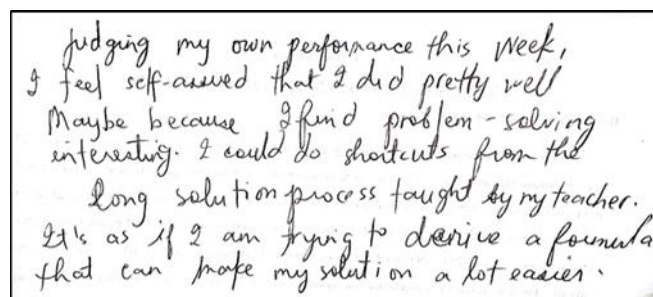 Judging my own performance this week,
I feel self-assured that I did pretty well
Maybe because I find problem-solving
interesting. I could do shortcuts from the
long solution process taught by my teacher.
It's as if I am trying to derive a formula
that can make my solution a lot easier.